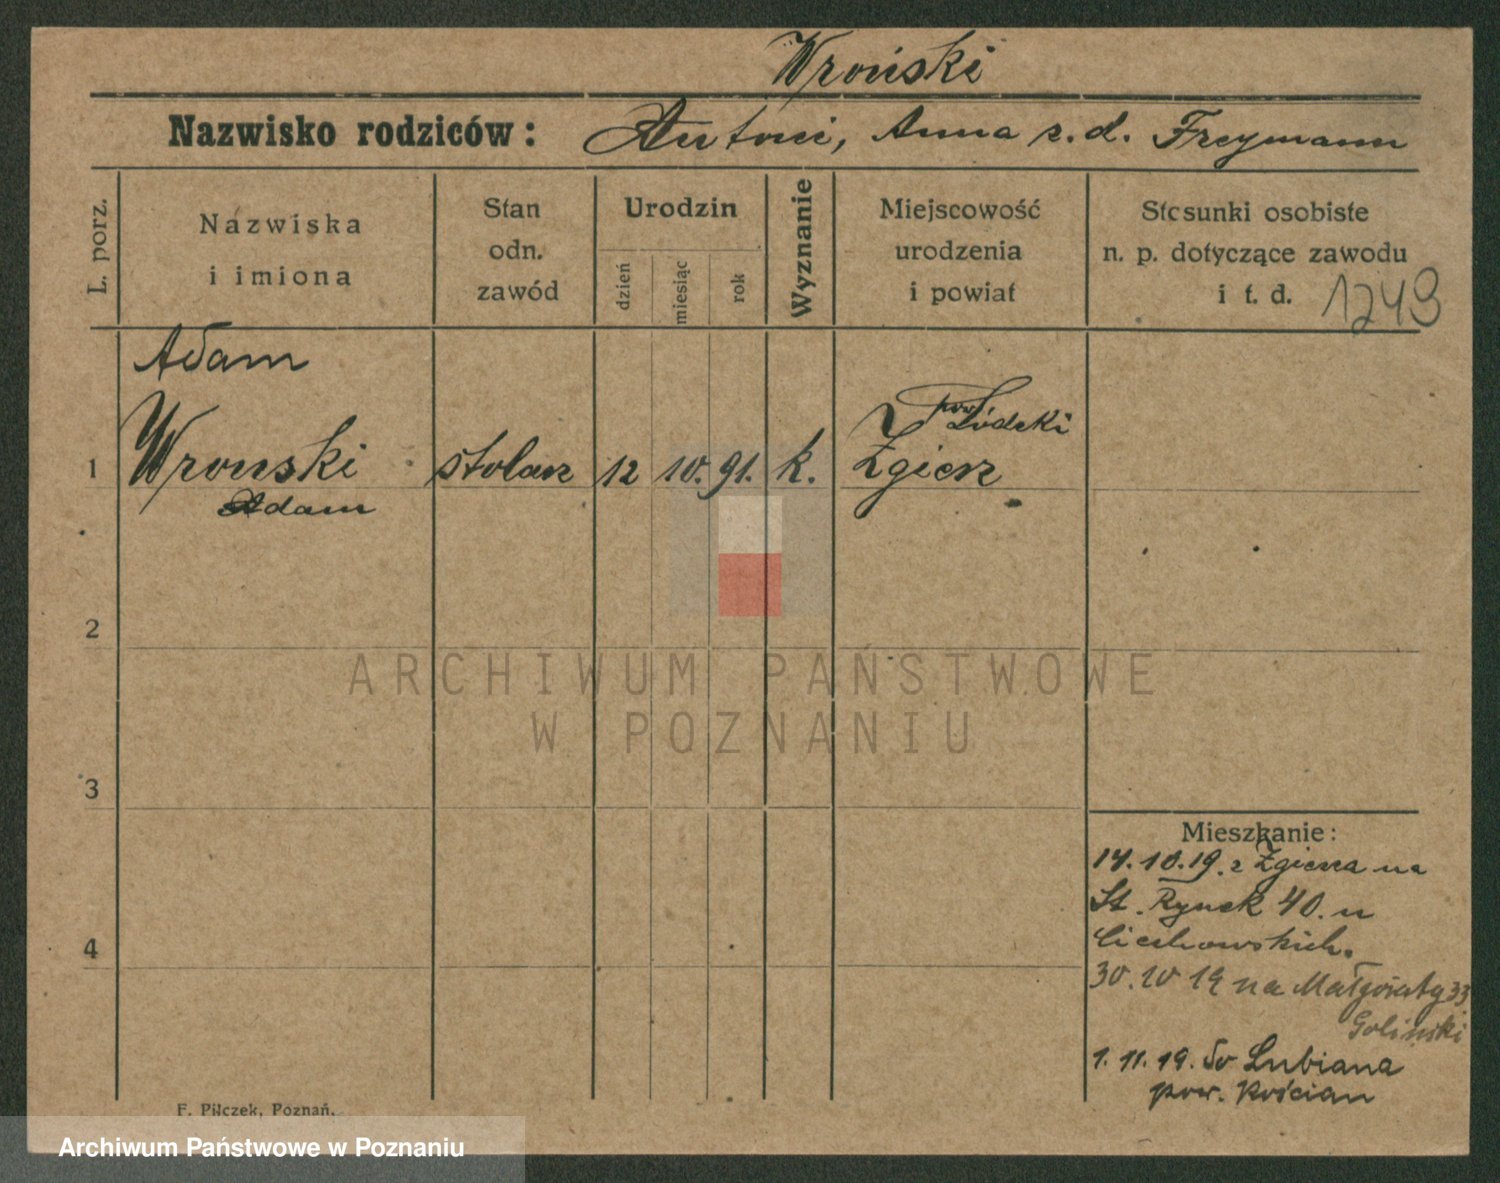 Wroński
Nazwisko rodziców: Antoni, Anna z. d. Freymann
L. porz.
Nazwiska
i imiona
Stan
odn.
zawód
Urodzin
dzień
miesiąc
rok
Wyznanie
Miejscowość
urodzenia
i powiat
Stosunki osobiste
n. p. dotyczące zawodu
i t. d. 1249
Adam
pow Łódzki
1 Wronski stolarz 12 10. 91. k. Zgierz
Adam
2
ARCHIWUM PAŃSTWOWE
W POZNANIU
3
Mieszkanie:
14. 10. 19. z Zgierza na
St. Rynek 40. u
Ciechowskich.
4
30. 10 19 na Małgorzaty 33
Goliński
1. 11. 19. do Lubiana
pow. Kościan
F. Pilczek, Poznań.
Archiwum Państwowe w Poznaniu